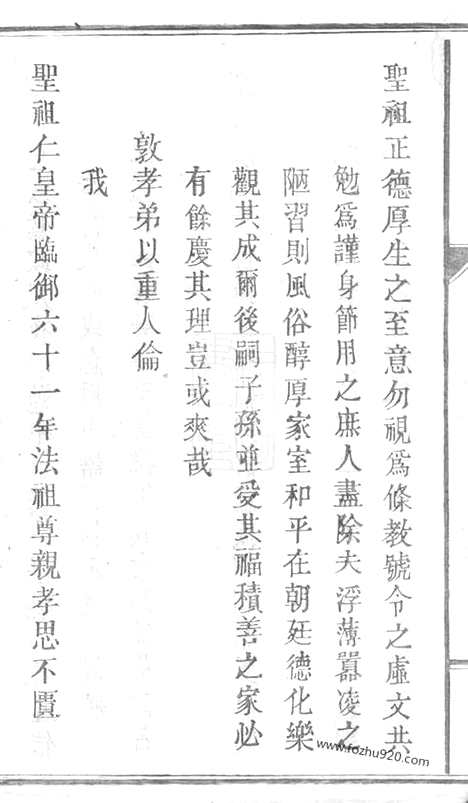 聖祖正德厚生之至意勿視爲條教號令之虛文共
勉爲謹身節用之庶人盡除夫浮薄囂凌之
陋習則風俗醇厚家室和平在朝廷德化樂
觀其成爾後嗣子孫並受其福積善之家必
有餘慶其理豈或爽哉
敦孝弟以重人倫
我
聖祖仁皇帝臨御六十一年法祖尊親孝思不匱
www.fozhu920.com